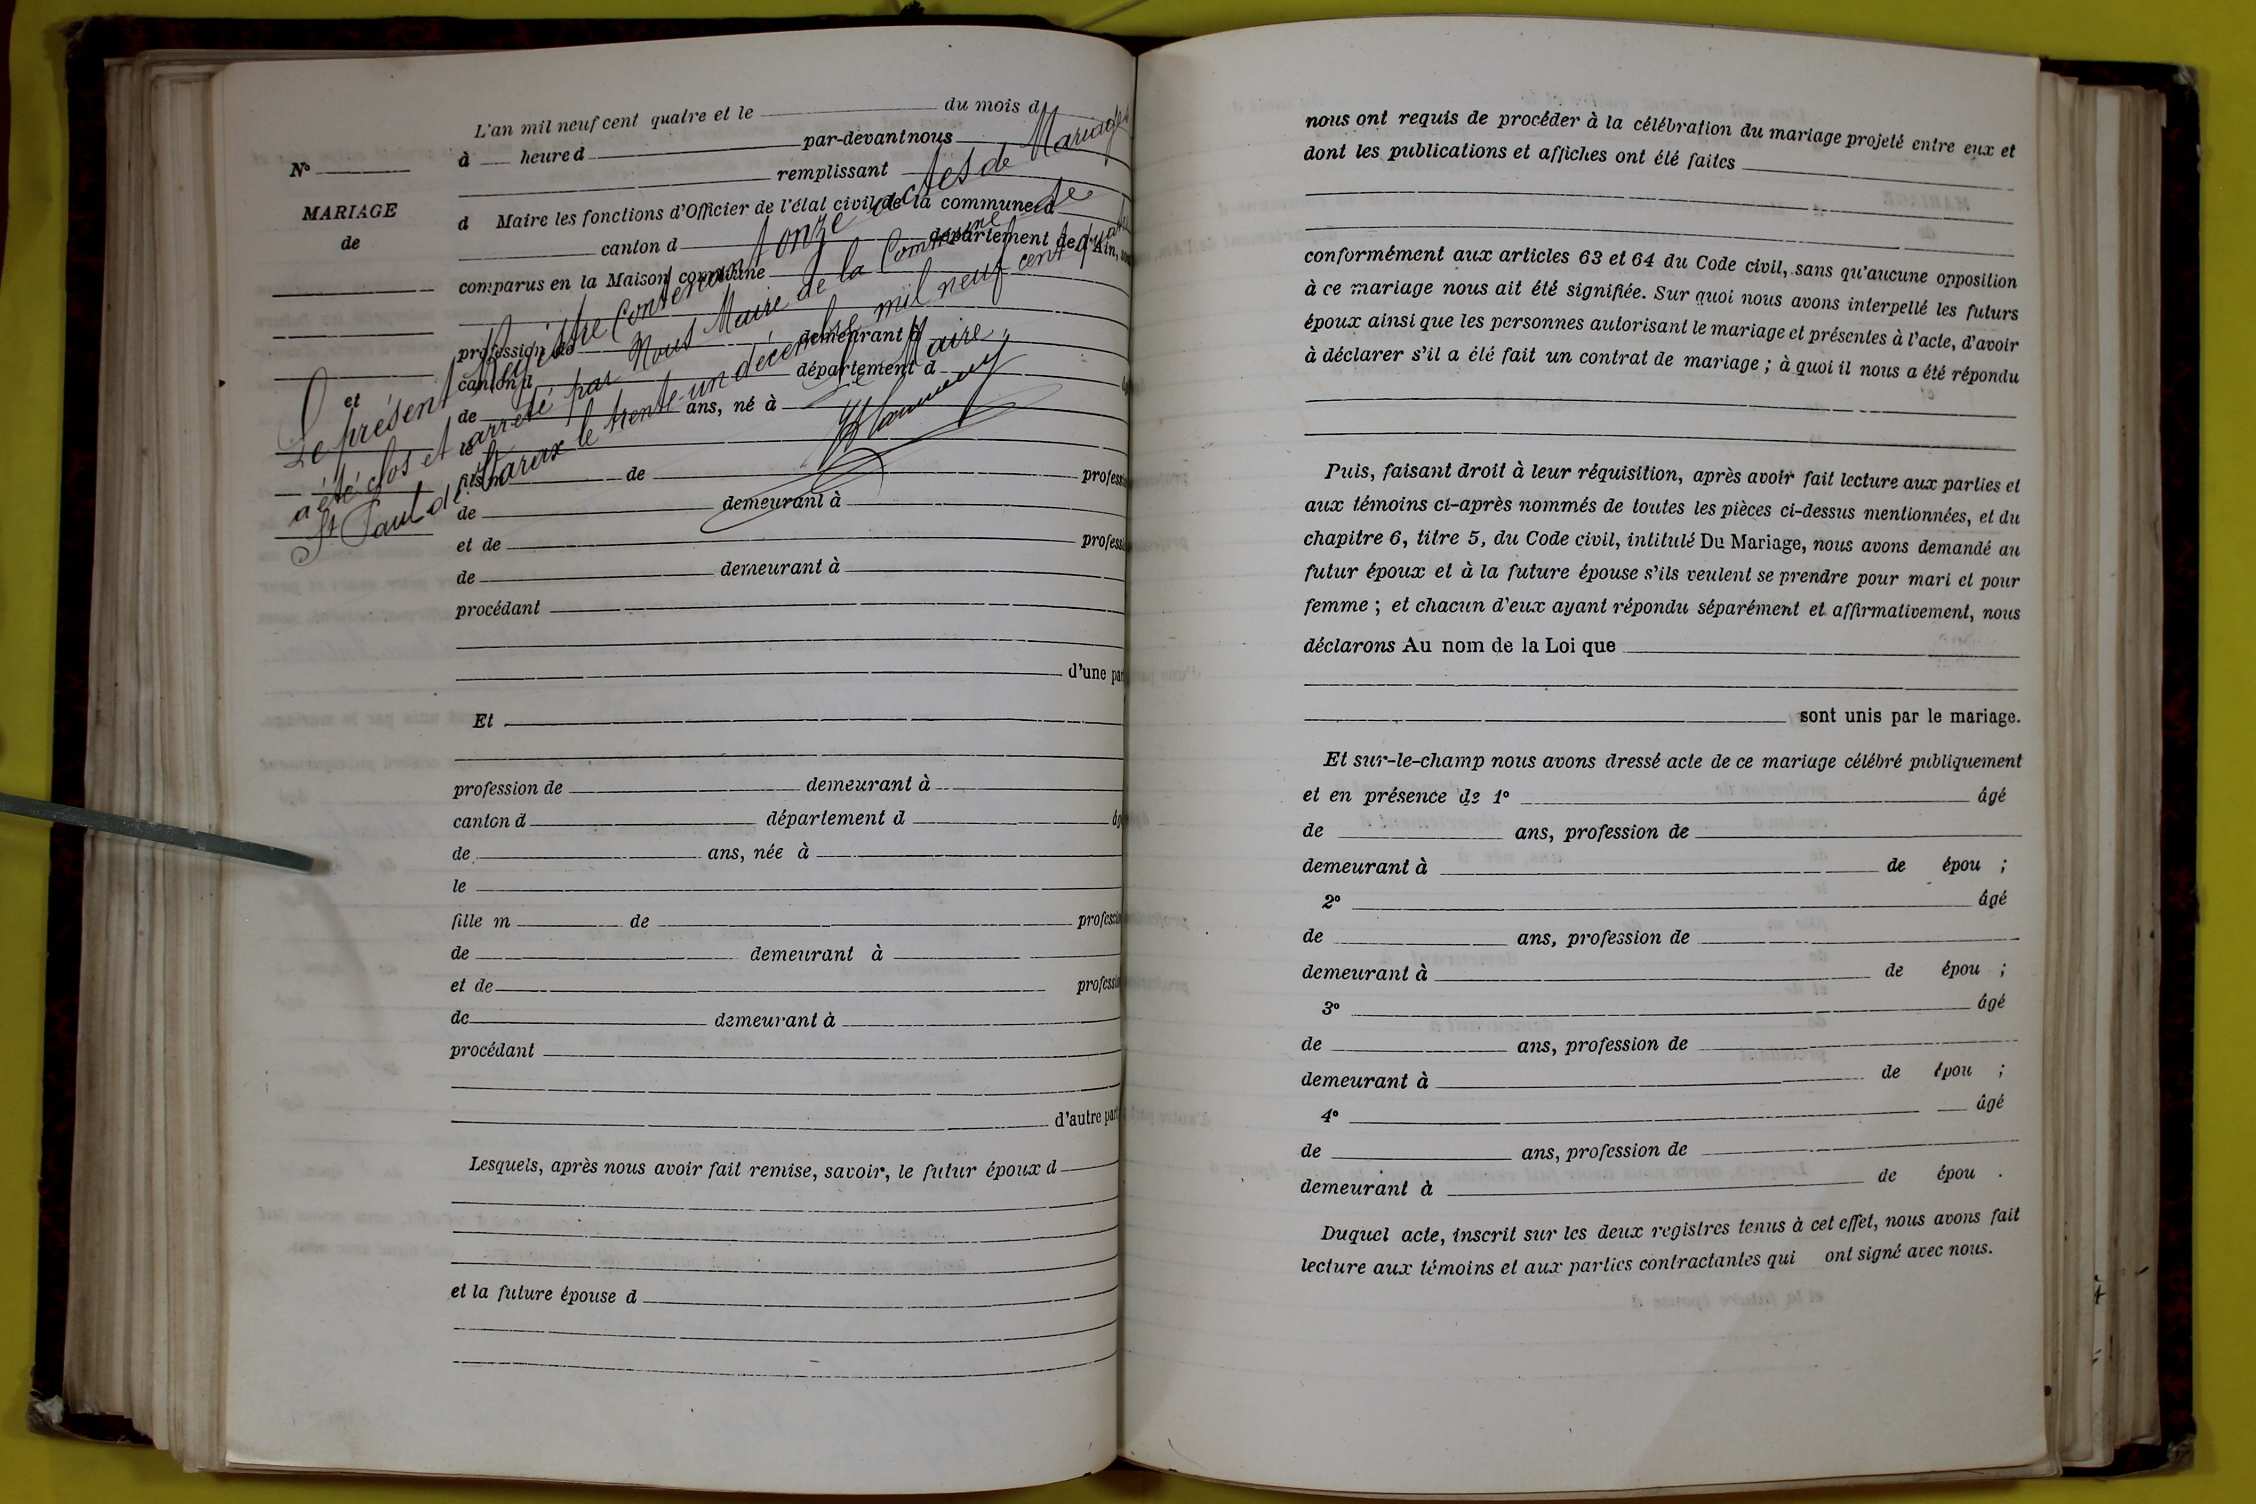 L'an mil neuf cent quatre et le du mois d
à heure d par-devant nous
remplissant
d Maire les fonctions d'Officier de l'état civil de la commune d
canton d département de l'Ain,
comparus en la Maison commune
profession de demeurant à
canton d département d
de ans, né à
le
fils m de profess
de demeurant à
et de profess
de demeurant à
procédant
d'une par
Et
profession de demeurant à
canton d département d âg
de ans, née à
le
fille m de profession
de demeurant à
et de profession
de demeurant à
procédant
d'autre part
Lesquels, après nous avoir fait remise, savoir, le futur époux d
et la future épouse d
N°
MARIAGE
de
et
Le présent Registre Contenant onze actes de Mariages
a été clos et arrêté par Nous Maire de la Commune de
St Paul de Varax le trente-un décembre mil neuf cent quatre
Le Maire,
nous ont requis de procéder à la célébration du mariage projeté entre eux et
dont les publications et affiches ont été faites
conformément aux articles 63 et 64 du Code civil, sans qu'aucune opposition
à ce mariage nous ait été signifiée. Sur quoi nous avons interpellé les futurs
époux ainsi que les personnes autorisant le mariage et présentes à l'acte, d'avoir
à déclarer s'il a été fait un contrat de mariage ; à quoi il nous a été répondu
Puis, faisant droit à leur réquisition, après avoir fait lecture aux parties et
aux témoins ci-après nommés de toutes les pièces ci-dessus mentionnées, et du
chapitre 6, titre 5, du Code civil, intitulé Du Mariage, nous avons demandé au
futur époux et à la future épouse s'ils veulent se prendre pour mari et pour
femme ; et chacun d'eux ayant répondu séparément et affirmativement, nous
déclarons Au nom de la Loi que
sont unis par le mariage.
Et sur-le-champ nous avons dressé acte de ce mariage célébré publiquement
et en présence de 1° âgé
de ans, profession de
demeurant à de épou ;
2° âgé
de ans, profession de
demeurant à de épou ;
3° âgé
de ans, profession de
demeurant à de épou ;
4° âgé
de ans, profession de
demeurant à de épou .
Duquel acte, inscrit sur les deux registres tenus à cet effet, nous avons fait
lecture aux témoins et aux parties contractantes qui ont signé avec nous.